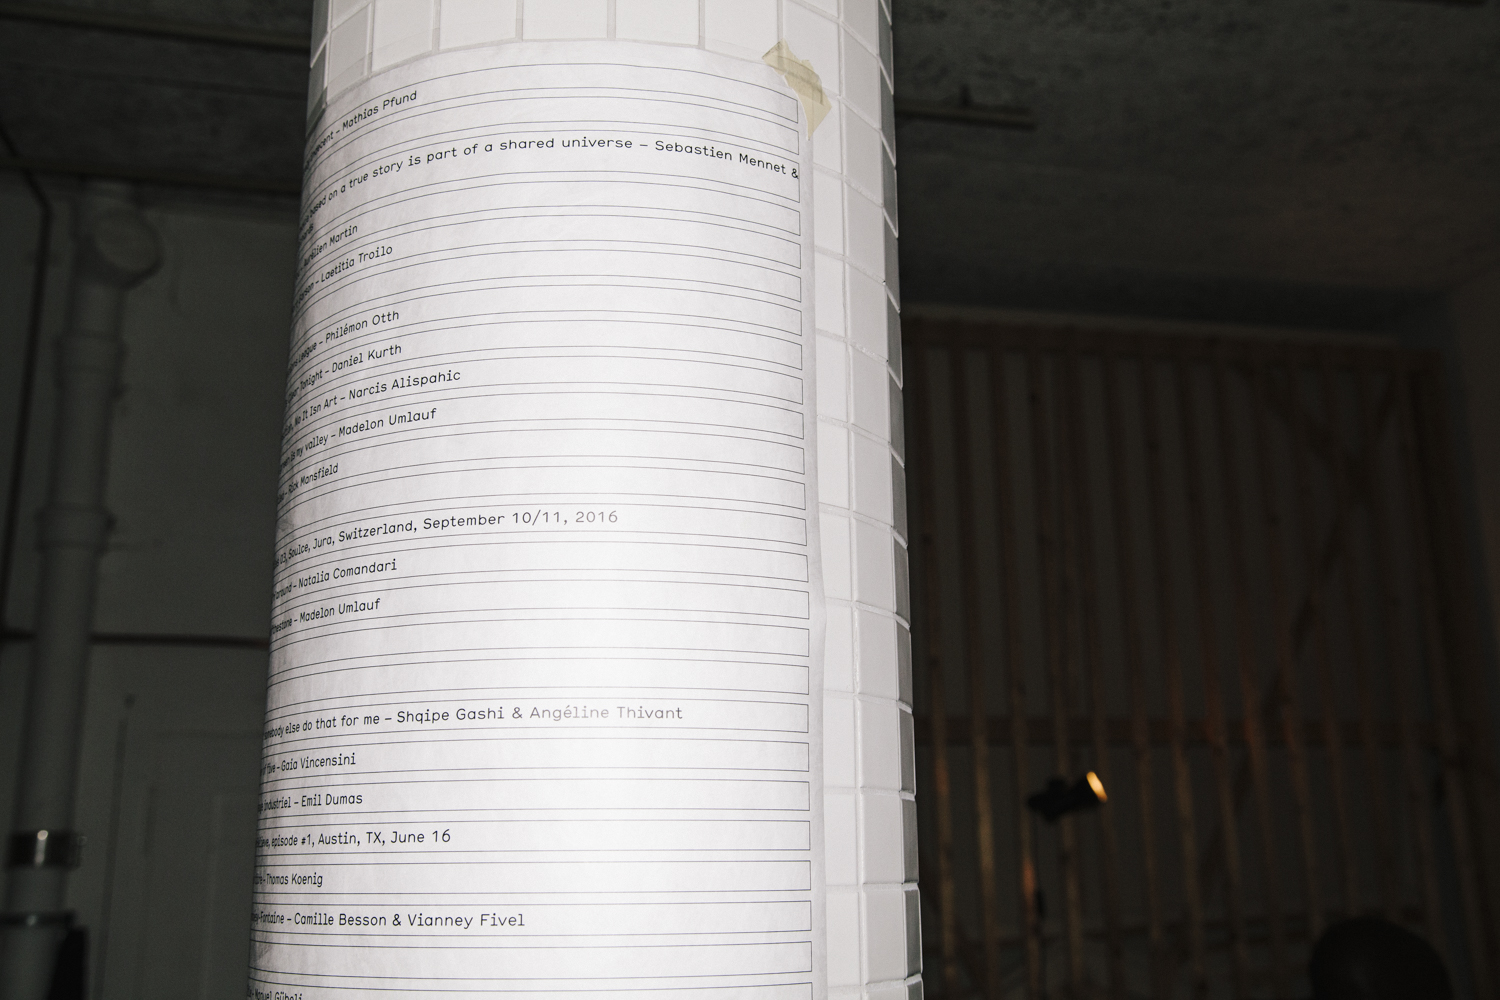 – Mathias Pfund
based on a true story is part of a shared universe – Sebastien Mennet &
Aurélien Martin
– Laetitia Troilo
– Philémon Otth
Tonight – Daniel Kurth
No It Isn Art – Narcis Alispahic
my valley – Madelon Umlauf
– Rick Mansfield
03, Soulce, Jura, Switzerland, September 10/11, 2016
around – Natalia Comandari
– Madelon Umlauf
else do that for me – Shqipe Gashi & Angéline Thivant
– Gaia Vincensini
industriel – Emil Dumas
episode #1, Austin, TX, June 16
– Thomas Koenig
– Camille Besson & Vianney Fivel